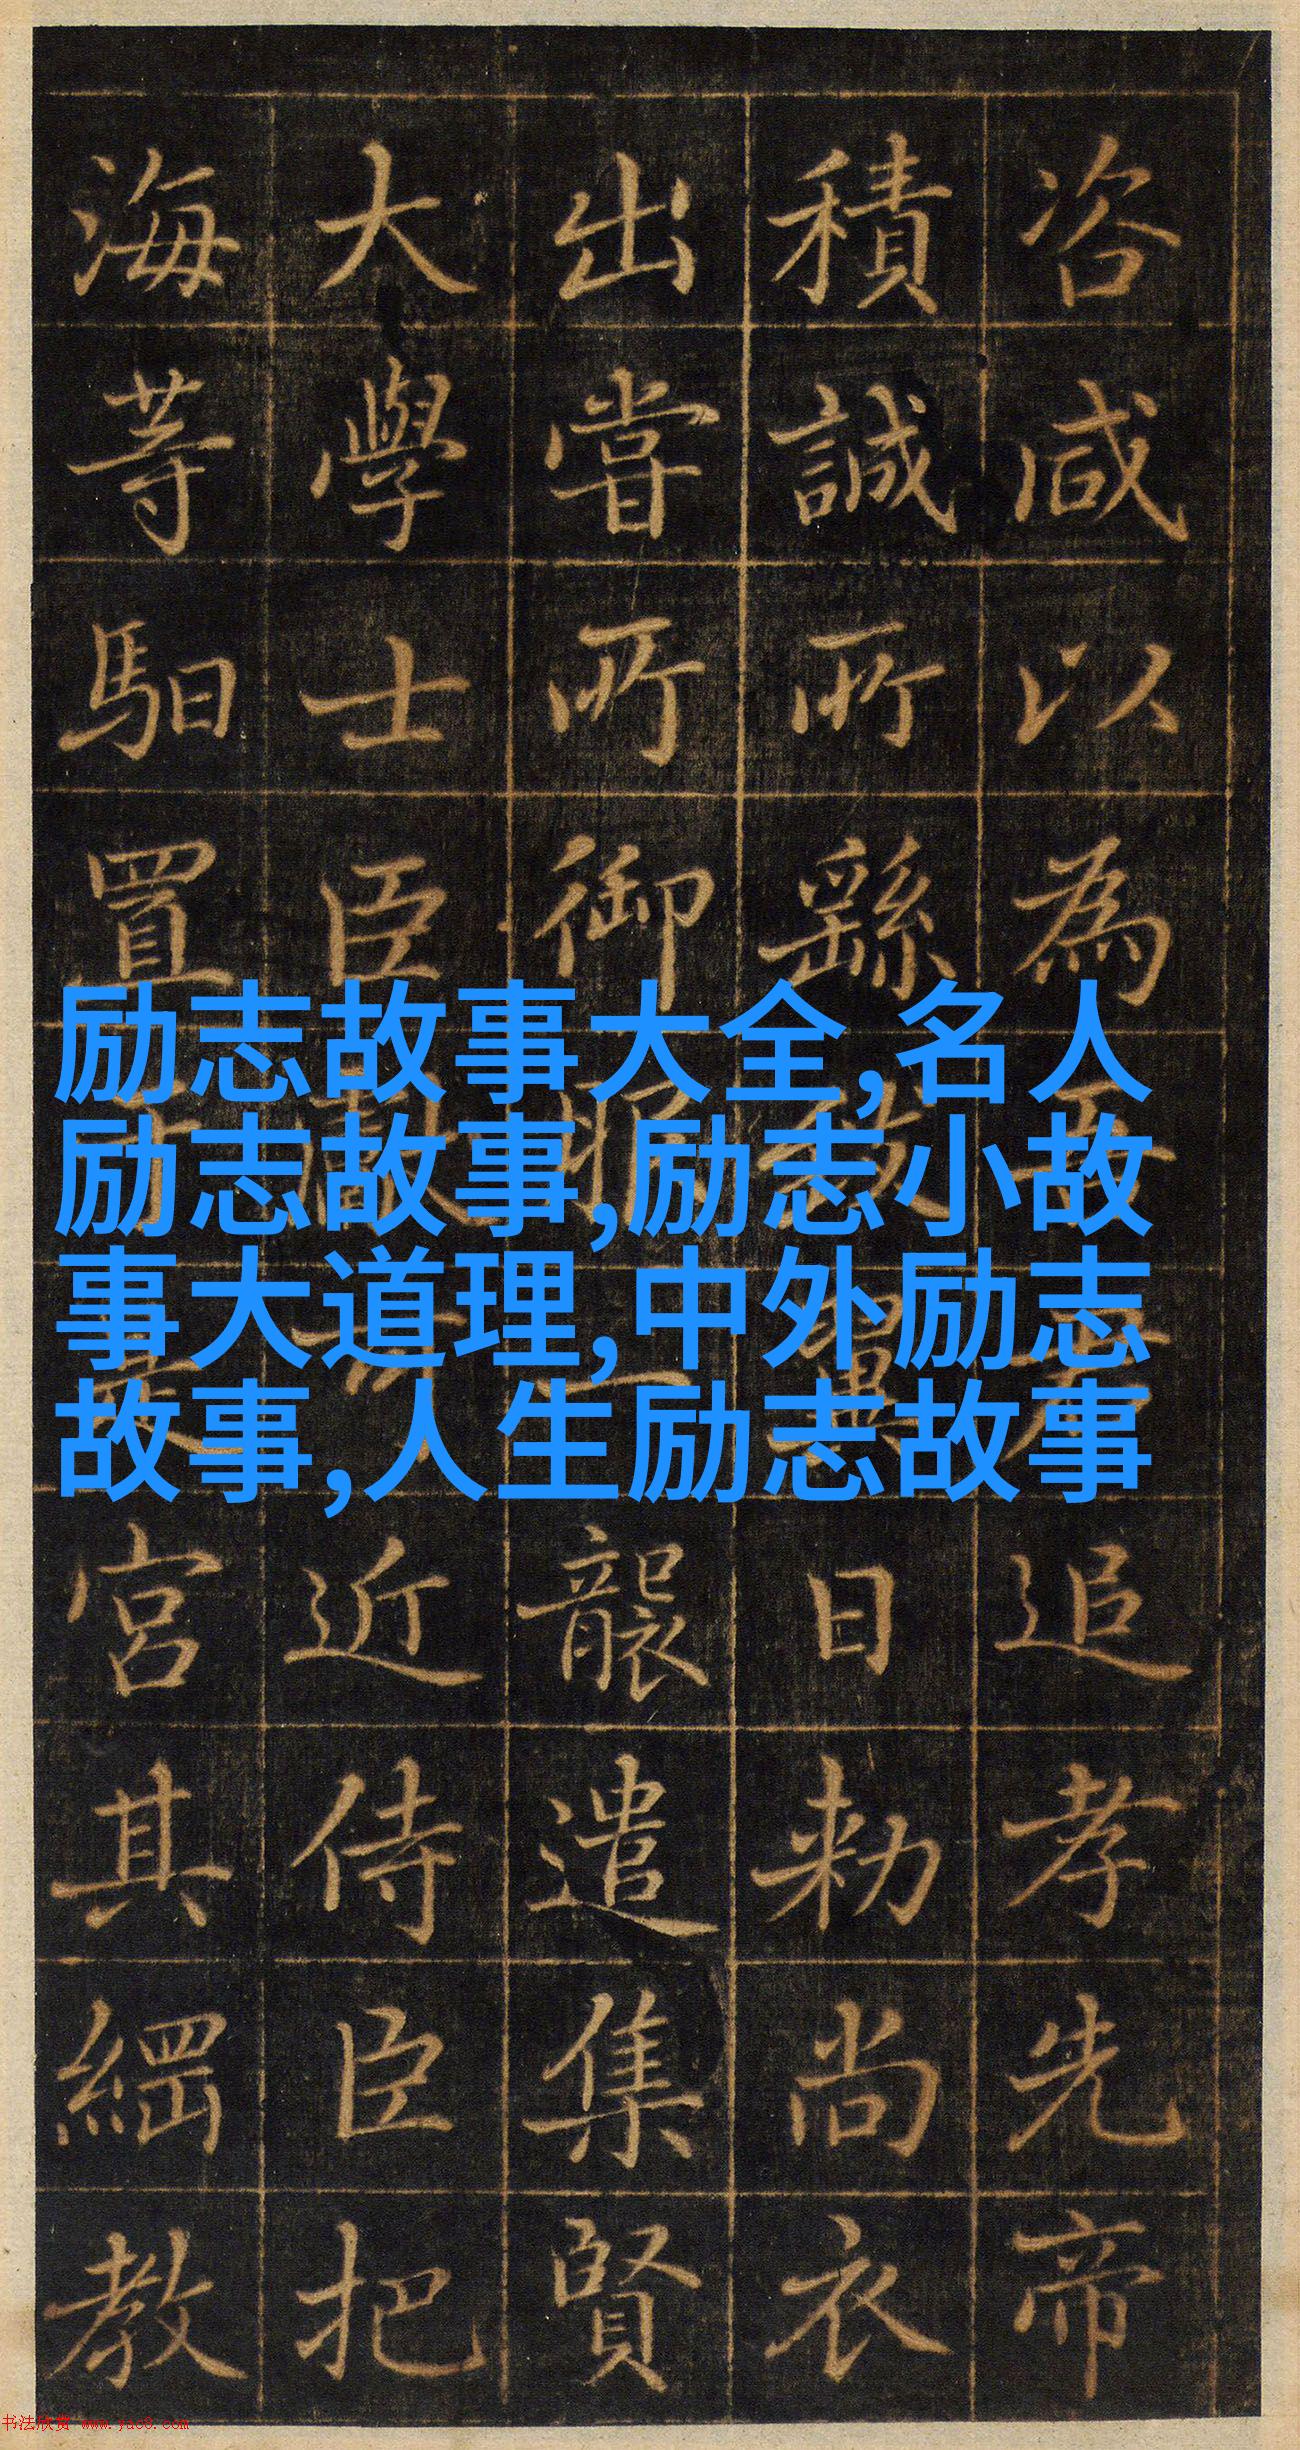 咨咸以為追孝先帝
積誠所繇日勅尚衣
出嘗所御襲遣集賢
大學士臣近侍臣把
海等馹置宮其綱教
励志故事大全,名人
励志故事,励志小故
事大道理,中外励志
故事,人生励志故事
书法欣赏 www.yac8.com